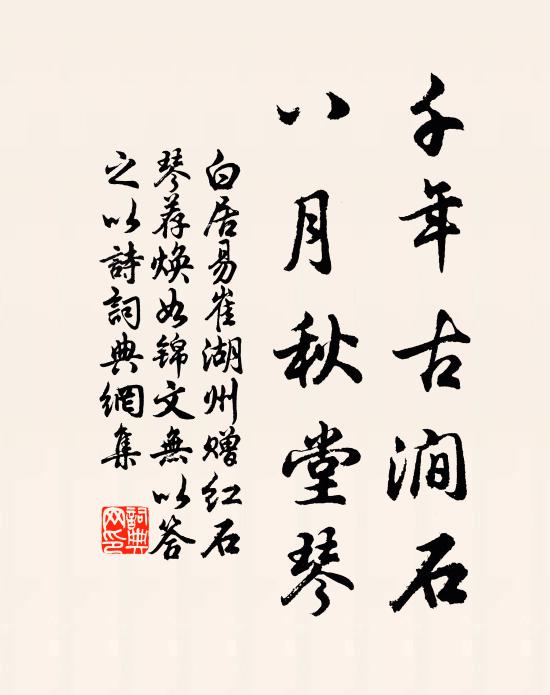 千年古澗石
八月秋堂琴
白居易崔湖州赠红石
琴荐焕如锦文無以答
之以詩詞典網集
詞典網印